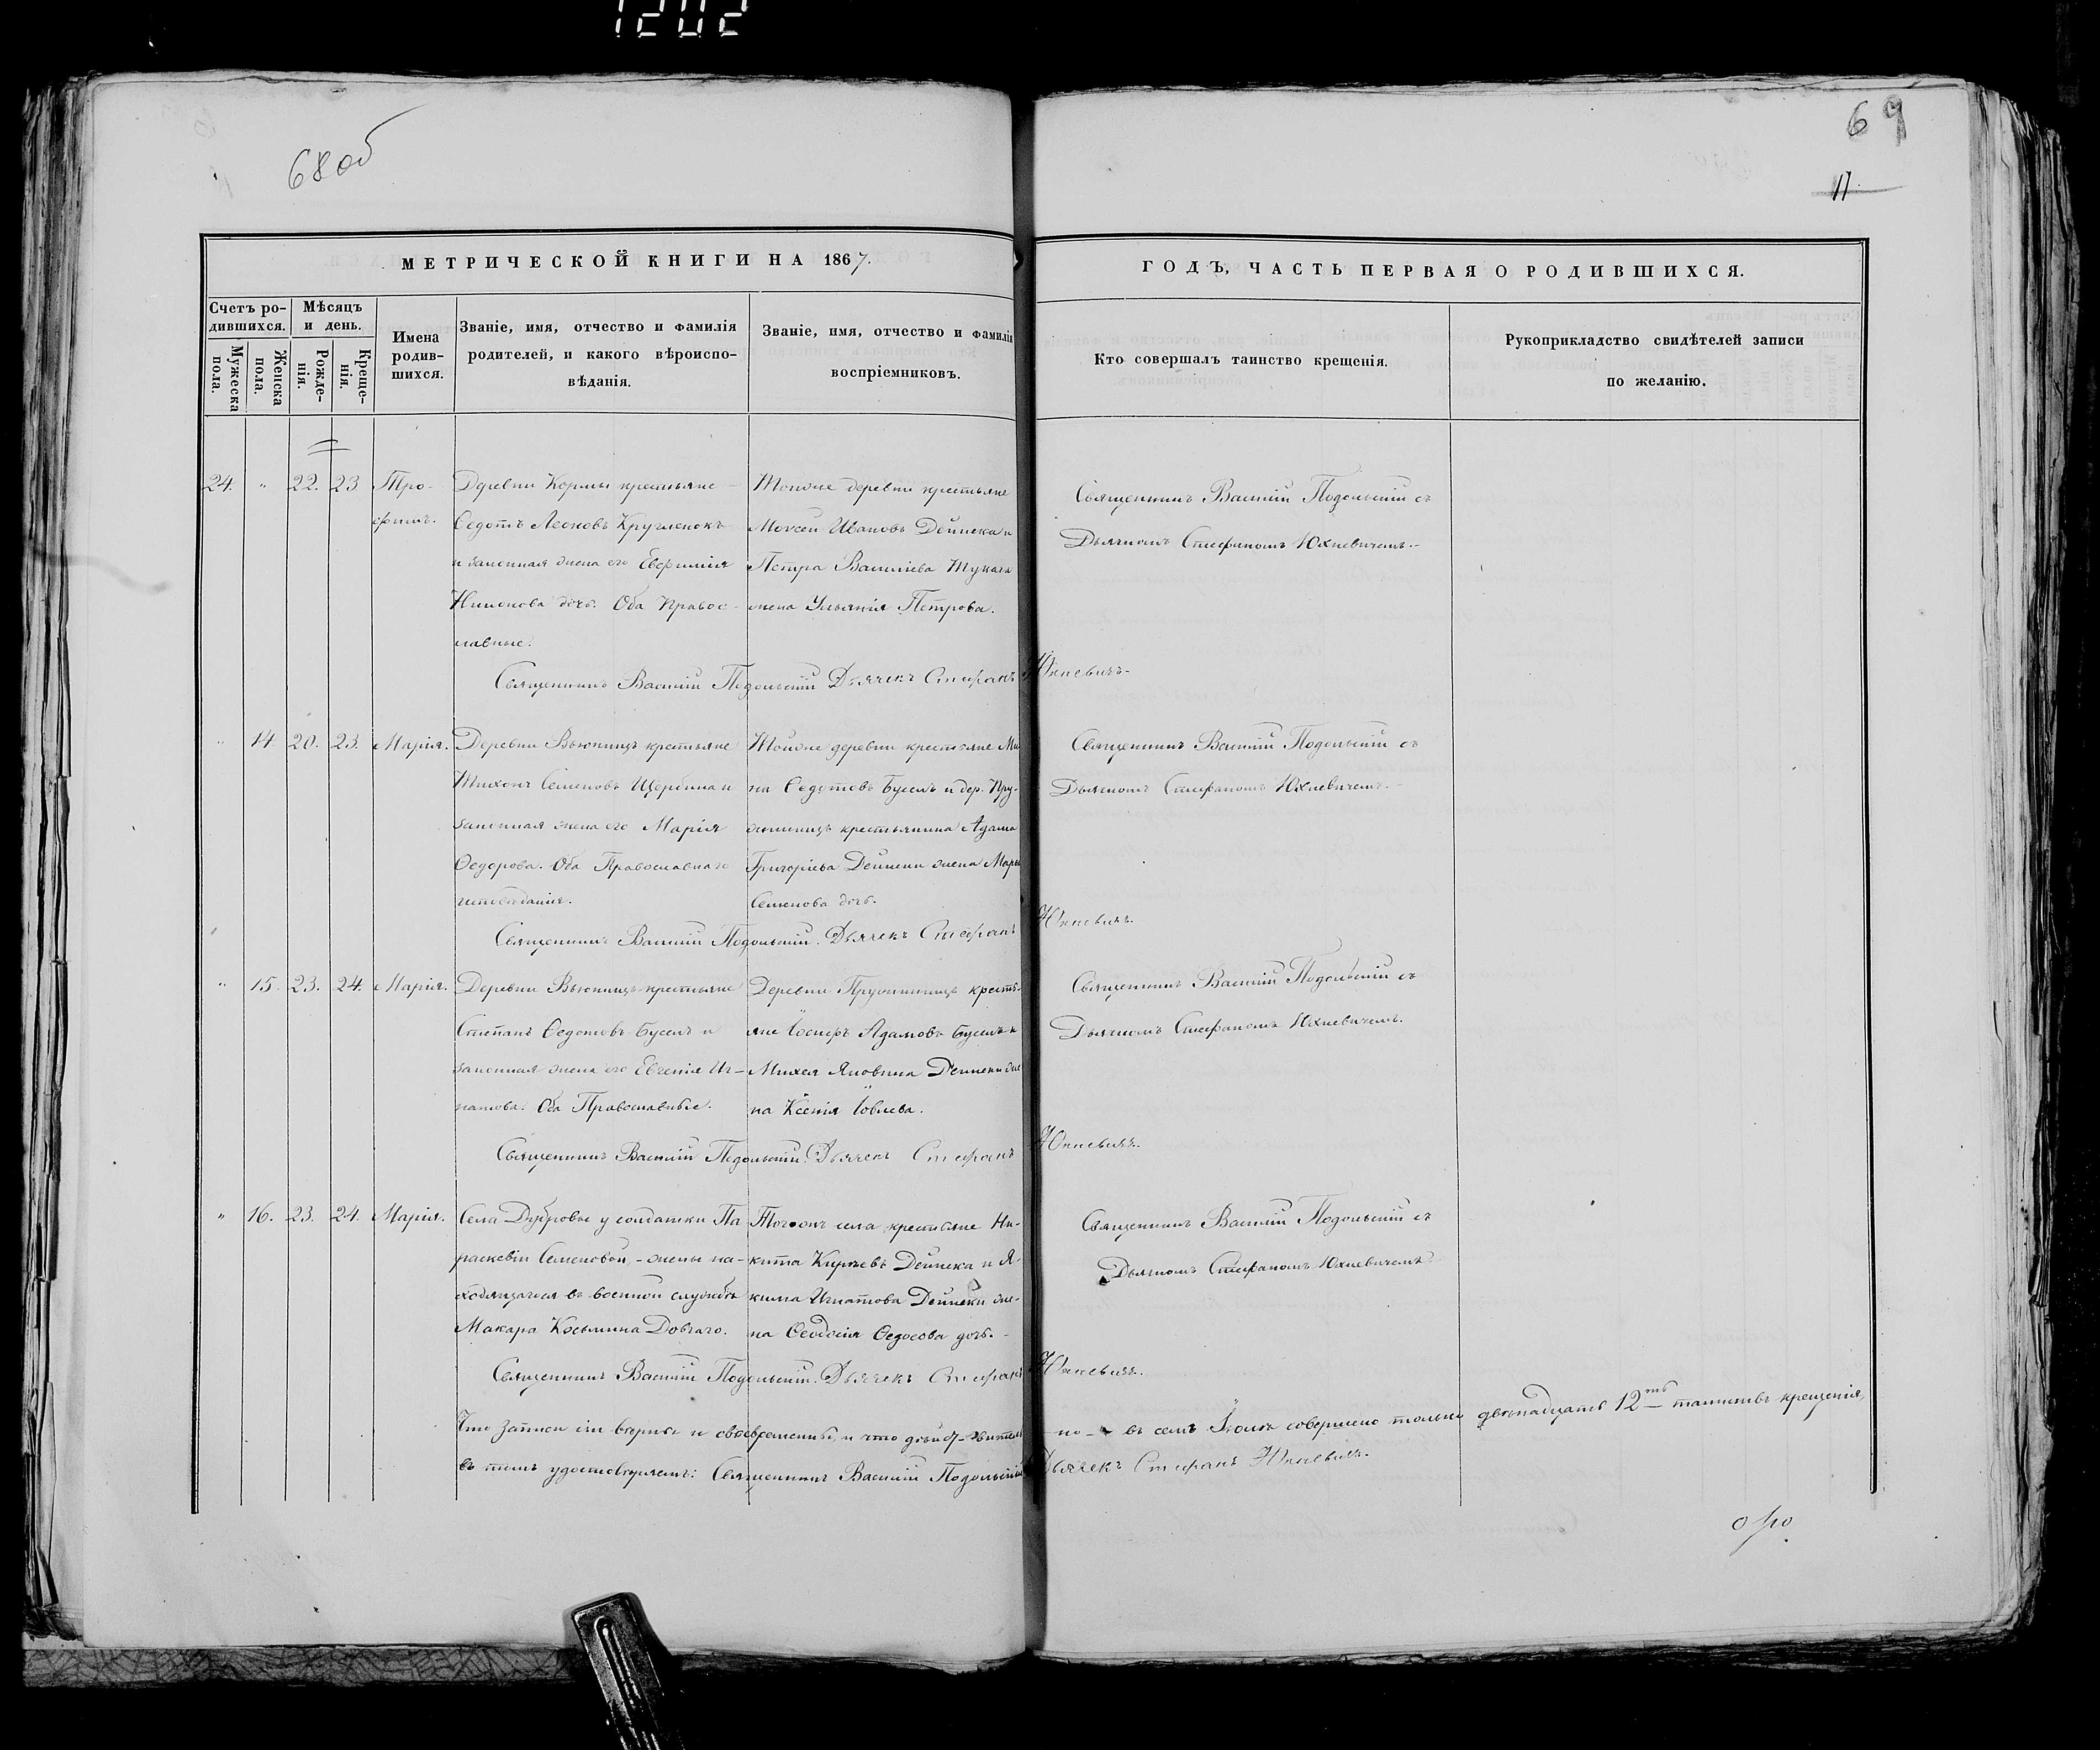 1202
68об
69
11
МЕТРИЧЕСКОЙ КНИГИ НА 1867.
ГОДЪ, ЧАСТЬ ПЕРВАЯ О РОДИВШИХСЯ.
Счетъ ро-
дившихся.
Мужеска
пола.
Женска
пола.
Мѣсяцъ
и день.
Рожде-
нія.
Креще-
нія.
Имена
родив-
шихся.
Званіе, имя, отчество и фамилія
родителей, и какого вѣроиспо-
вѣданія.
Званіе, имя, отчество и фамилія
воспріемниковъ.
Кто совершалъ таинство крещенія.
Рукоприкладство свидѣтелей записи
по желанію.
24. " 22. 23 Тро-
фимъ.
Деревни Кормы крестьяне
Ѳедотъ Леоновъ Кругленокъ
и законная жена его Евфимія
Никонова дочь. Оба Правос-
лавные.
Тойже деревни крестьяне
Моѵсей Ивановъ Дейнека и
Петра Василіева
жена Ульянія Петрова.
Священникъ Василій Подольскій съ
Дьячкомъ Стефаномъ Юхневичемъ.-
Священникъ Василій Подольскій Дьячекъ Стефанъ Юхневичъ-
" 14 20. 23. Марія.
Деревни Вьюнищъ крестьяне
Тихонъ Семеновъ Щербина и
законная жена его Марія
Ѳедорова. Оба Православнаго
исповѣданія.
Тойже деревни крестьяне Ми
на Ѳедотовъ Буселъ и дер. Пру-
крестьянина Адама
Григоріева Дейнеки жена Марья
Семенова дочь.
Священникъ Василій Подольскій съ
Дьячкомъ Стефаномъ Юхневичемъ.-
Священникъ Василій Подольскій. Дьячекъ Стефанъ Юхневичъ.
" 15. 23. 24. Марія.
Деревни Вьюнищъ крестьяне
Степанъ Ѳедотовъ Буселъ и
законная жена его Евгенія Иг-
натова. Оба Православные.
Деревни крестья-
не Іосифъ Адамовъ Буселъ и
Михея Яковлина Дейнеки же
на Ксенія Іовлева.
Священникъ Василій Подольскій съ
Дьячкомъ Стефаномъ Юхневичемъ.
Священникъ Василій Подольскій. Дьячекъ Стефанъ Юхневичъ.
" 16. 23. 24. Марія.
Села Дубровы у солдатки Па
раскевіи Семеновой, - жены на-
ходящагося въ военной службѣ
Макара Косьмина Довгаго.
Тогожъ села крестьяне Ни-
кита Киріевъ Дейнека и Я-
кима Игнатова Дейнеки же-
на Ѳеодосія Ѳедосова дочь.-
Священникъ Василій Подольскій съ
Дьячкомъ Стефаномъ Юхневичемъ
Священникъ Василій Подольскій. Дьячекъ Стефанъ Юхневичъ.
Что записи сіи вѣрны и своевременны, и что дѣйствитель-но- въ семъ Іюлѣ совершено только двѣнадцать 12ть таинствъ крещенія,
въ томъ удостовѣряемъ: Священникъ Василій Подольскій Дьячекъ Стефанъ Юхневичъ.